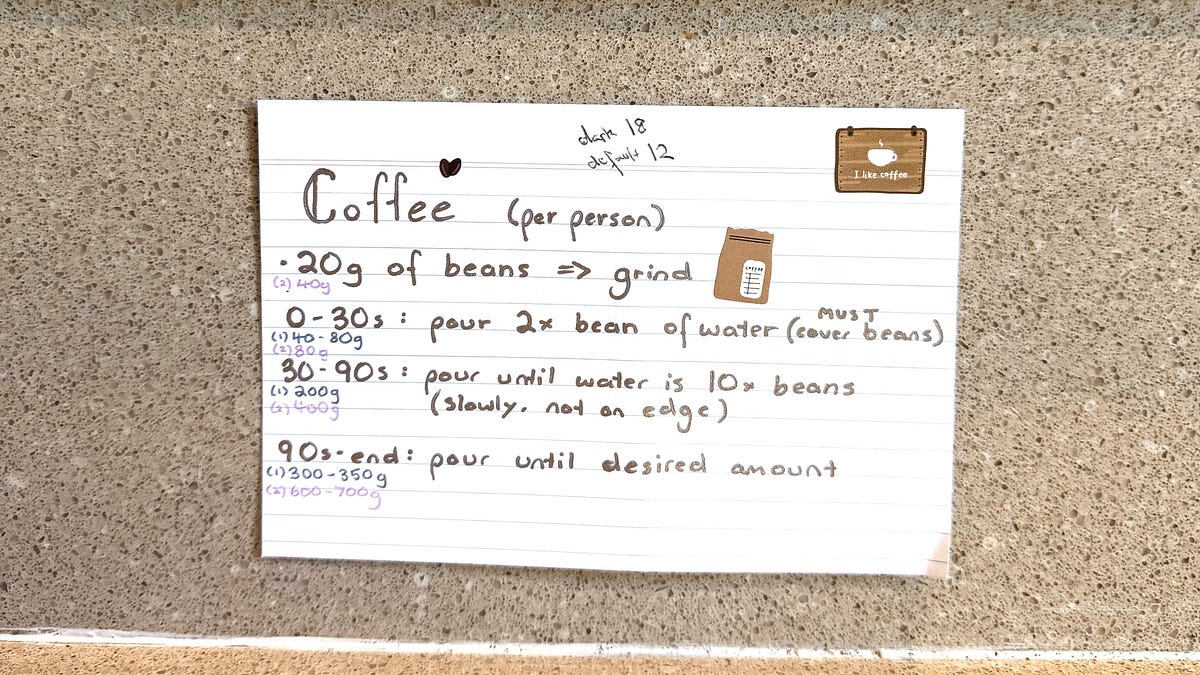 dark 18
default 12
I like coffee
Coffee (per person)
coffee
· 20g of beans => grind
(2) 40g
MUST
0-30s: pour 2x bean of water (cover beans)
(1) 40-80g
(2) 80g
30-90s: pour until water is 10x beans
(1) 200g
(slowly. not on edge)
(2) 400g
90s-end: pour until desired amount
(1) 300-350g
(2) 600-700g